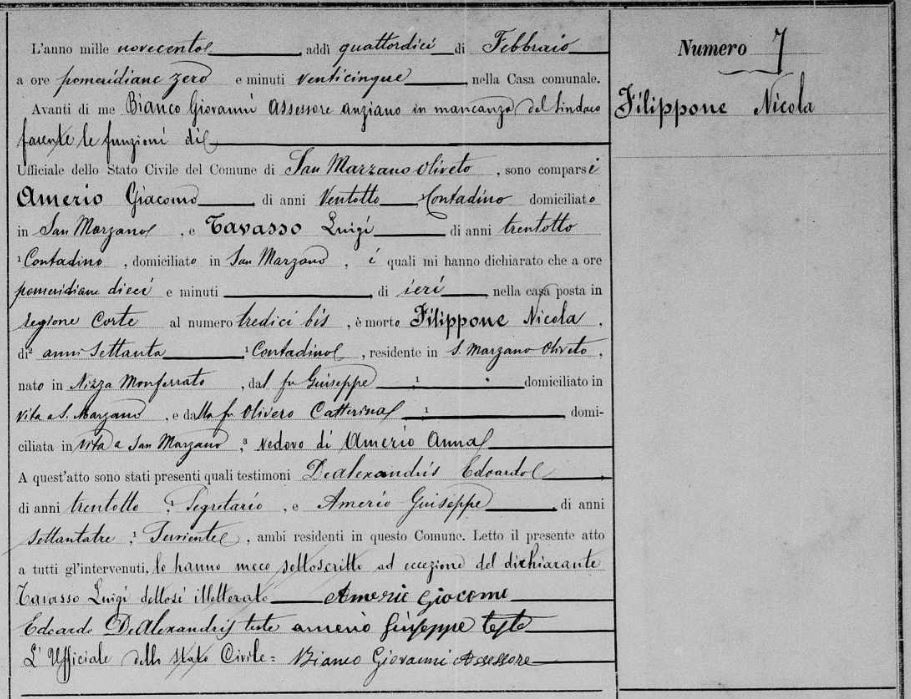 L'anno mille novecento, addì quattordici di Febbraio
a ore pomeridiane zero e minuti venticinque, nella Casa comunale.
Avanti di me Bianco Giovanni Assessore anziano in mancanza del Sindaco
facente le funzioni di
Ufficiale dello Stato Civile del Comune di San Marzano Oliveto, sono comparsi
Amerio Giacomo di anni Ventotto Contadino domiciliato
in San Marzano, e Tavasso Luigi di anni trentotto
¹ Contadino, domiciliato in San Marzano, i quali mi hanno dichiarato che a ore
pomeridiane dieci e minuti di ieri, nella casa posta in
regione Corte al numero tredici bis, è morto Filippone Nicola,
di² anni Settanta ¹ Contadino, residente in S. Marzano Oliveto,
nato in Nizza Monferrato, dal fu Giuseppe ¹ domiciliato in
vita a S. Marzano, e dalla fu Olivero Catterina ¹ domi-
ciliata in vita a San Marzano, ³ vedovo di Amerio Anna
A quest'atto sono stati presenti quali testimoni Dealexandris Edoardo
di anni trentotto, ¹ Segretario, e Amerio Giuseppe, di anni
Settantatre, ¹ Serviente, ambi residenti in questo Comune. Letto il presente atto
a tutti gl'intervenuti, lo hanno meco sottoscritto ad eccezione del dichiarante
Tavasso Luigi dettosi illetterato Amerio Giacomo
Edoardo Dealexandris teste amerio Giuseppe teste
L'Ufficiale dello Stato Civile = Bianco Giovanni Assessore
Numero 7
Filippone Nicola